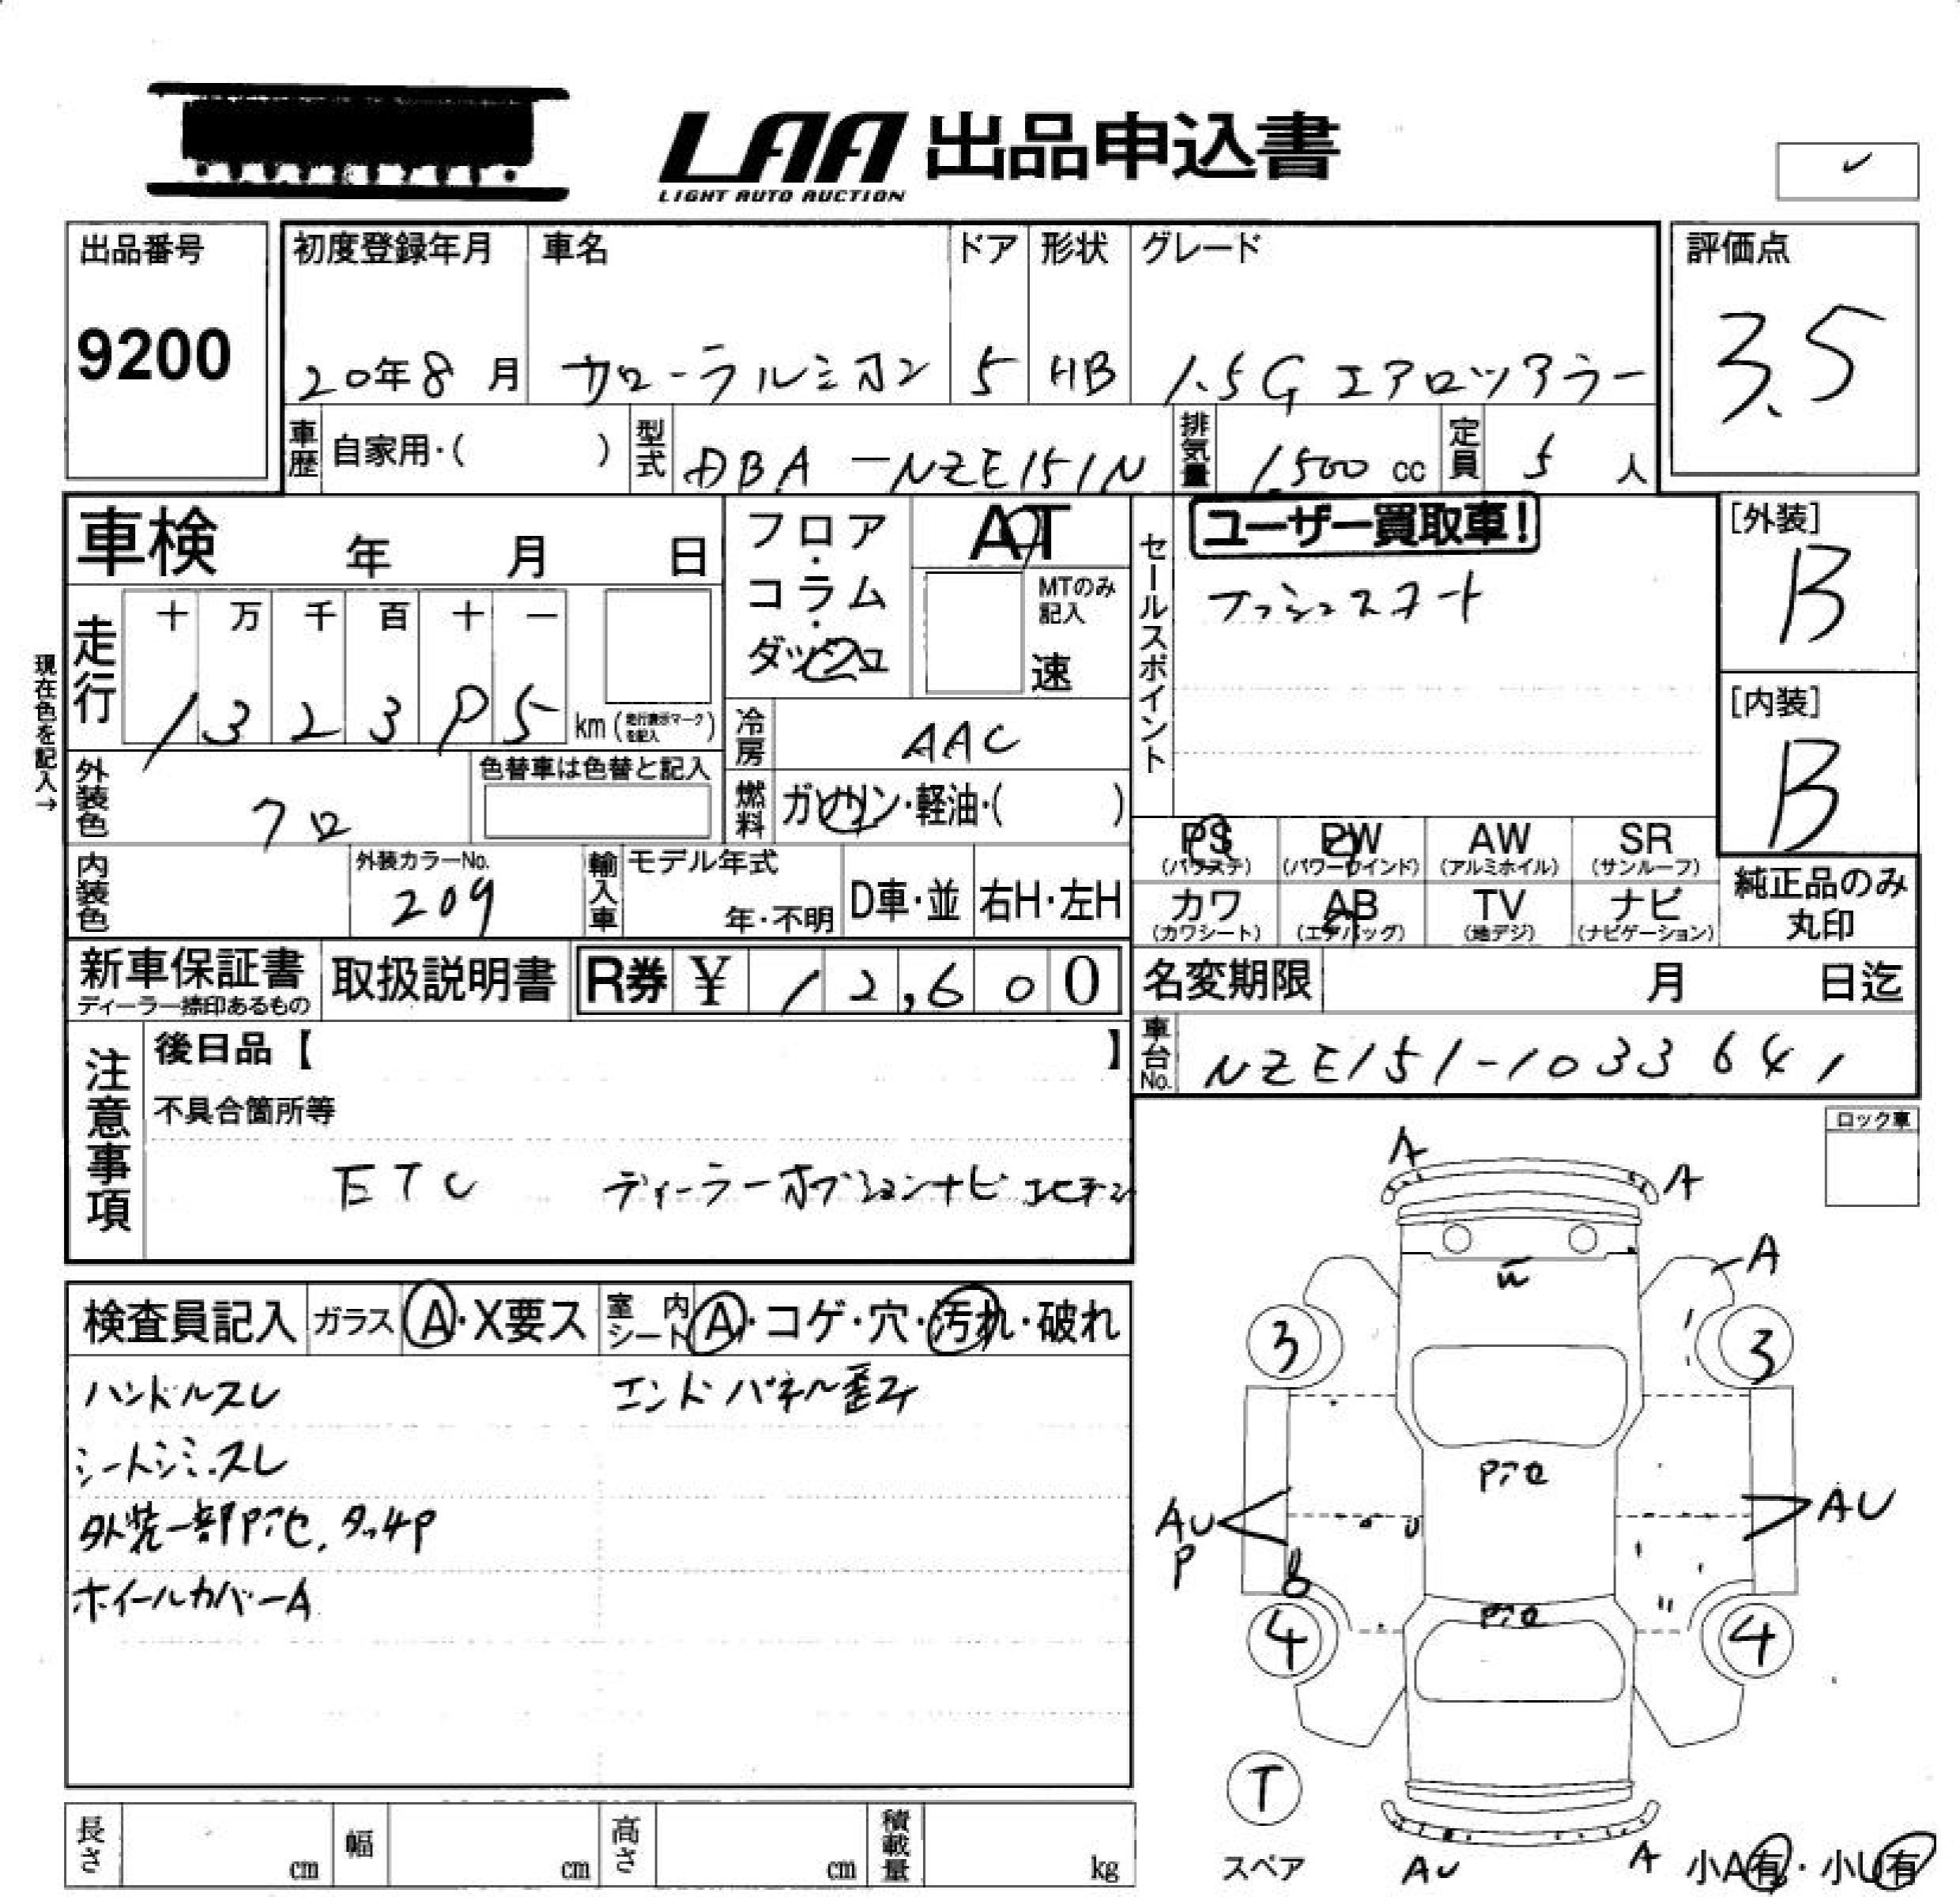 LAA 出品申込書
LIGHT AUTO AUCTION
出品番号
9200
初度登録年月 車名 ドア 形状 グレード
20年8月 カローラルミオン 5 HB 1.5G エアロツアラー
評価点
3.5
車歴 自家用・( ) 型式 DBA-NZE151N 排気量 1,500 cc 定員 5 人
車検 年 月 日
フロア・コラム・ダッシュ
AT
MTのみ記入
速
セールスポイント
ユーザー買取車!
プッシュスタート
[外装]
B
[内装]
B
現在色を記入→
走行
十 万 千 百 十 一
1323 5 km (走行表示マークを記入)
冷房 AAC
外装色 クロ
色替車は色替と記入
燃料 ガソリン・軽油・( )
PS (パワステ) PW (パワーウインド) AW (アルミホイル) SR (サンルーフ)
カワ (カワシート) AB (エアバッグ) TV (地デジ) ナビ (ナビゲーション)
純正品のみ丸印
内装色
外装カラーNo.
209
輸入車 モデル年式
年・不明
D車・並 右H・左H
新車保証書
ディーラー捺印あるもの
取扱説明書
R券 ¥ 12,600
名変期限 月 日迄
車台No. NZE151-1033641
注意事項
後日品【 】
不具合箇所等
ETC ディーラーオプションナビ
ロック車
検査員記入 ガラス A・X要ス 室内シート A・コゲ・穴・汚れ・破れ
ハンドルスレ エンドパネル歪み
シートシミ.スレ
外装一部Pアセ.タッチP
ホイールカバーA
A
A
A
3 3
Pアセ
AU
P
AU
Pアセ
4 4
T
スペア
AU
A
小A有・小U有
長さ cm 幅 cm 高さ cm 積載量 kg